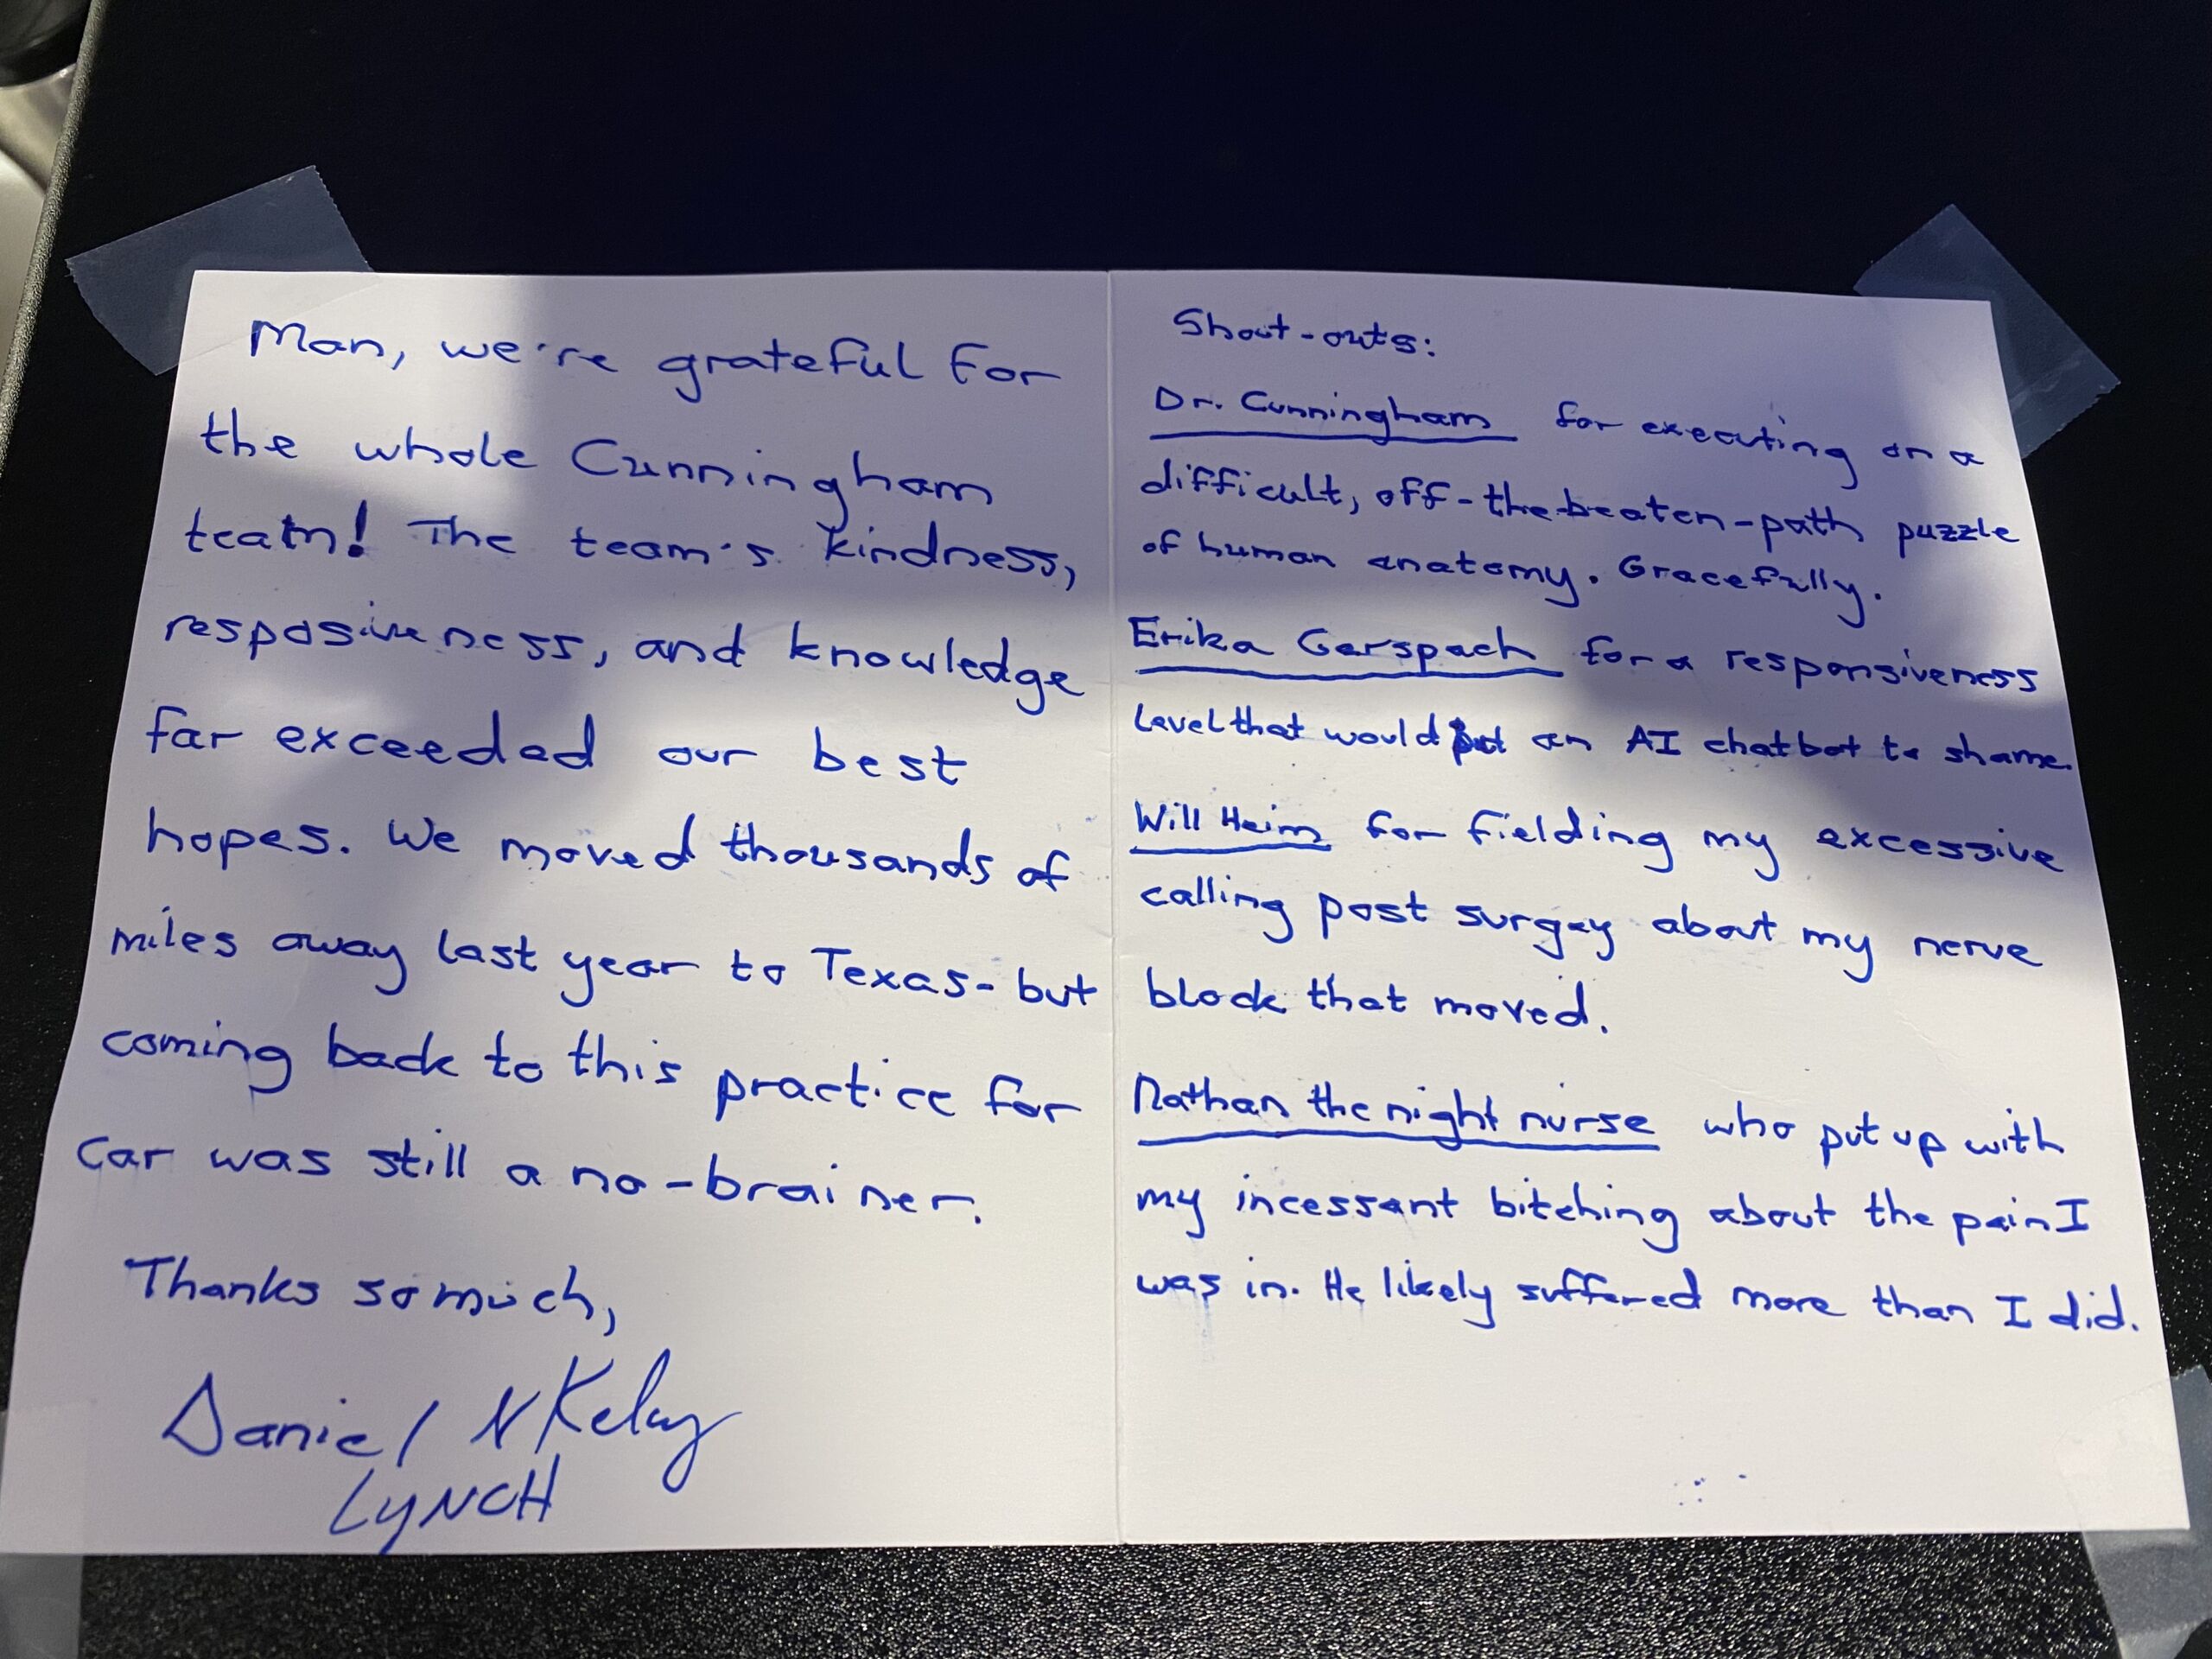 Man, we're grateful for
the whole Cunningham
team! The team's kindness,
resposiveness, and knowledge
far exceeded our best
hopes. We moved thousands of
miles away last year to Texas- but
coming back to this practice for
car was still a no-brainer.
Thanks so much,
Daniel N Kelly
LYNCH
Shout-outs:
Dr. Cunningham for executing on a
difficult, off-the-beaten-path puzzle
of human anatomy. Gracefully.
Erika Gerspach for a responsiveness
level that would put an AI chatbot to shame.
Will Heim for fielding my excessive
calling post surgey about my nerve
block that moved.
Nathan the night nurse who put up with
my incessant bitching about the pain I
was in. He likely suffered more than I did.